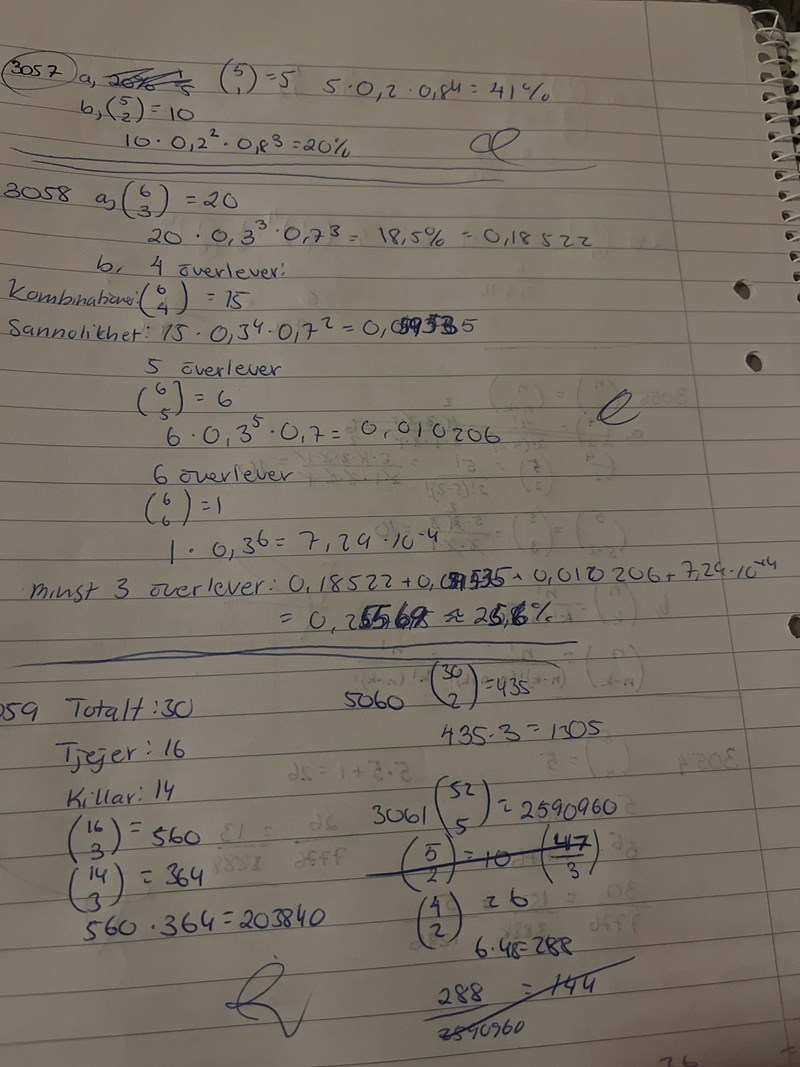 3057 a, (5 1) = 5 5 · 0,2 · 0,8⁴ = 41%
b, (5 2) = 10
10 · 0,2² · 0,8³ = 20%
3058 a, (6 3) = 20
20 · 0,3³ · 0,7³ = 18,5% = 0,18522
b, 4 överlever:
Kombinationer: (6 4) = 15
Sannolikhet: 15 · 0,3⁴ · 0,7² = 0,059535
5 överlever
(6 5) = 6
6 · 0,3⁵ · 0,7 = 0,010206
6 överlever
(6 6) = 1
1 · 0,3⁶ = 7,29 · 10⁻⁴
Minst 3 överlever: 0,18522 + 0,059535 + 0,010206 + 7,29 · 10⁻⁴
= 0,25569 ≈ 25,6%
059 Totalt: 30
Tjejer: 16
Killar: 14
(16 3) = 560
(14 3) = 364
560 · 364 = 203840
5060 (30 2) = 435
435 · 3 = 1305
3061 (52 5) = 2590960
(5 2) = 10 (47 3)
(4 2) = 6
6 · 48 = 288
288 = 144
2590960